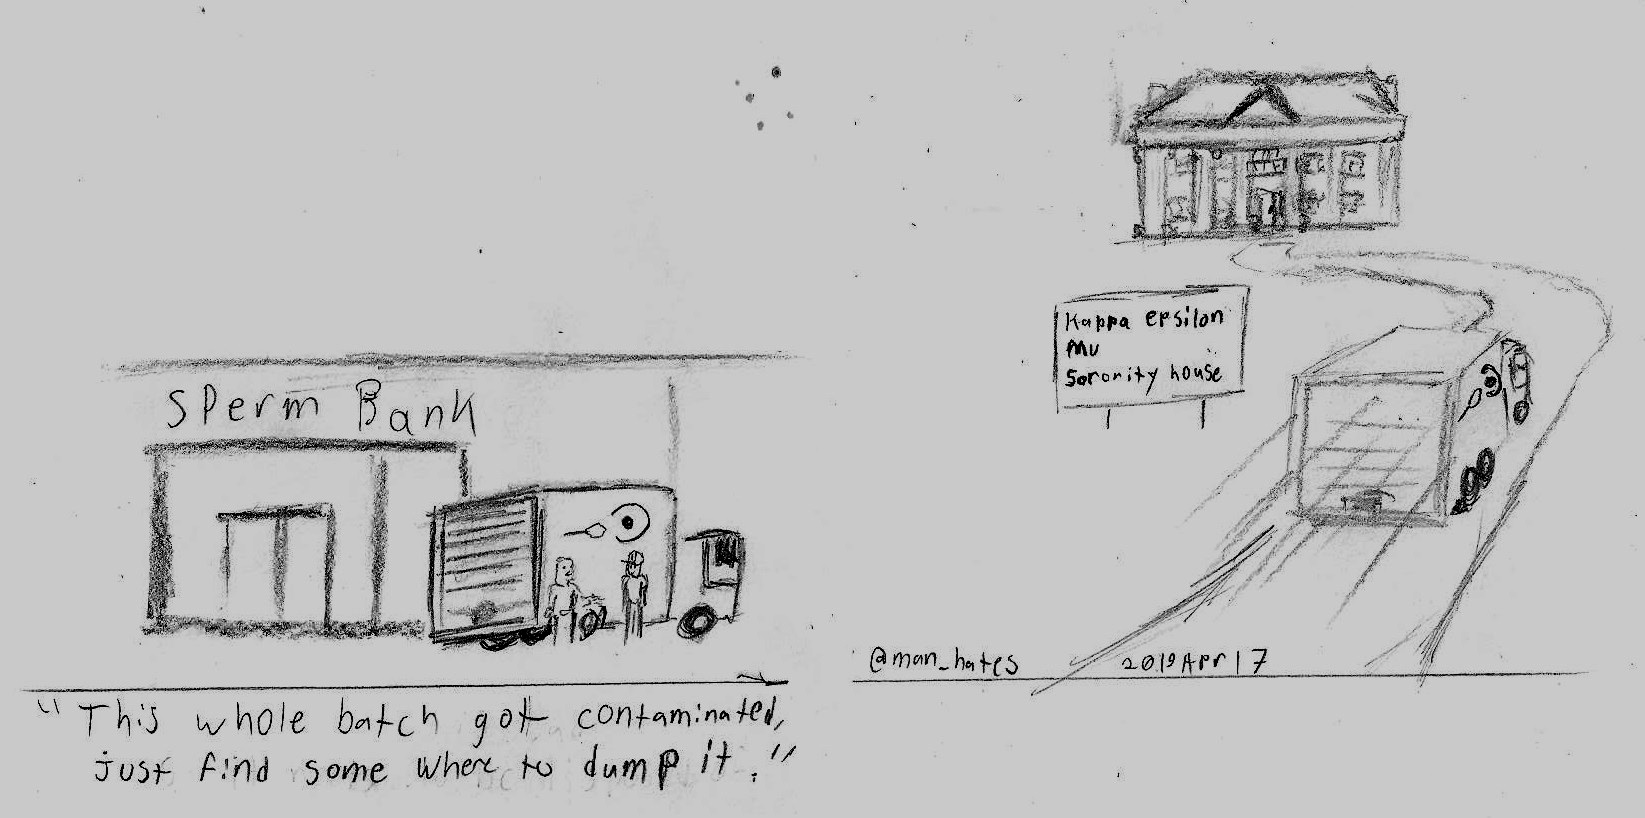 Sperm Bank
"This whole batch got contaminated,
just find some where to dump it."
Kappa epsilon
Mu
Sorority house
@man_hates
2019 Apr 17